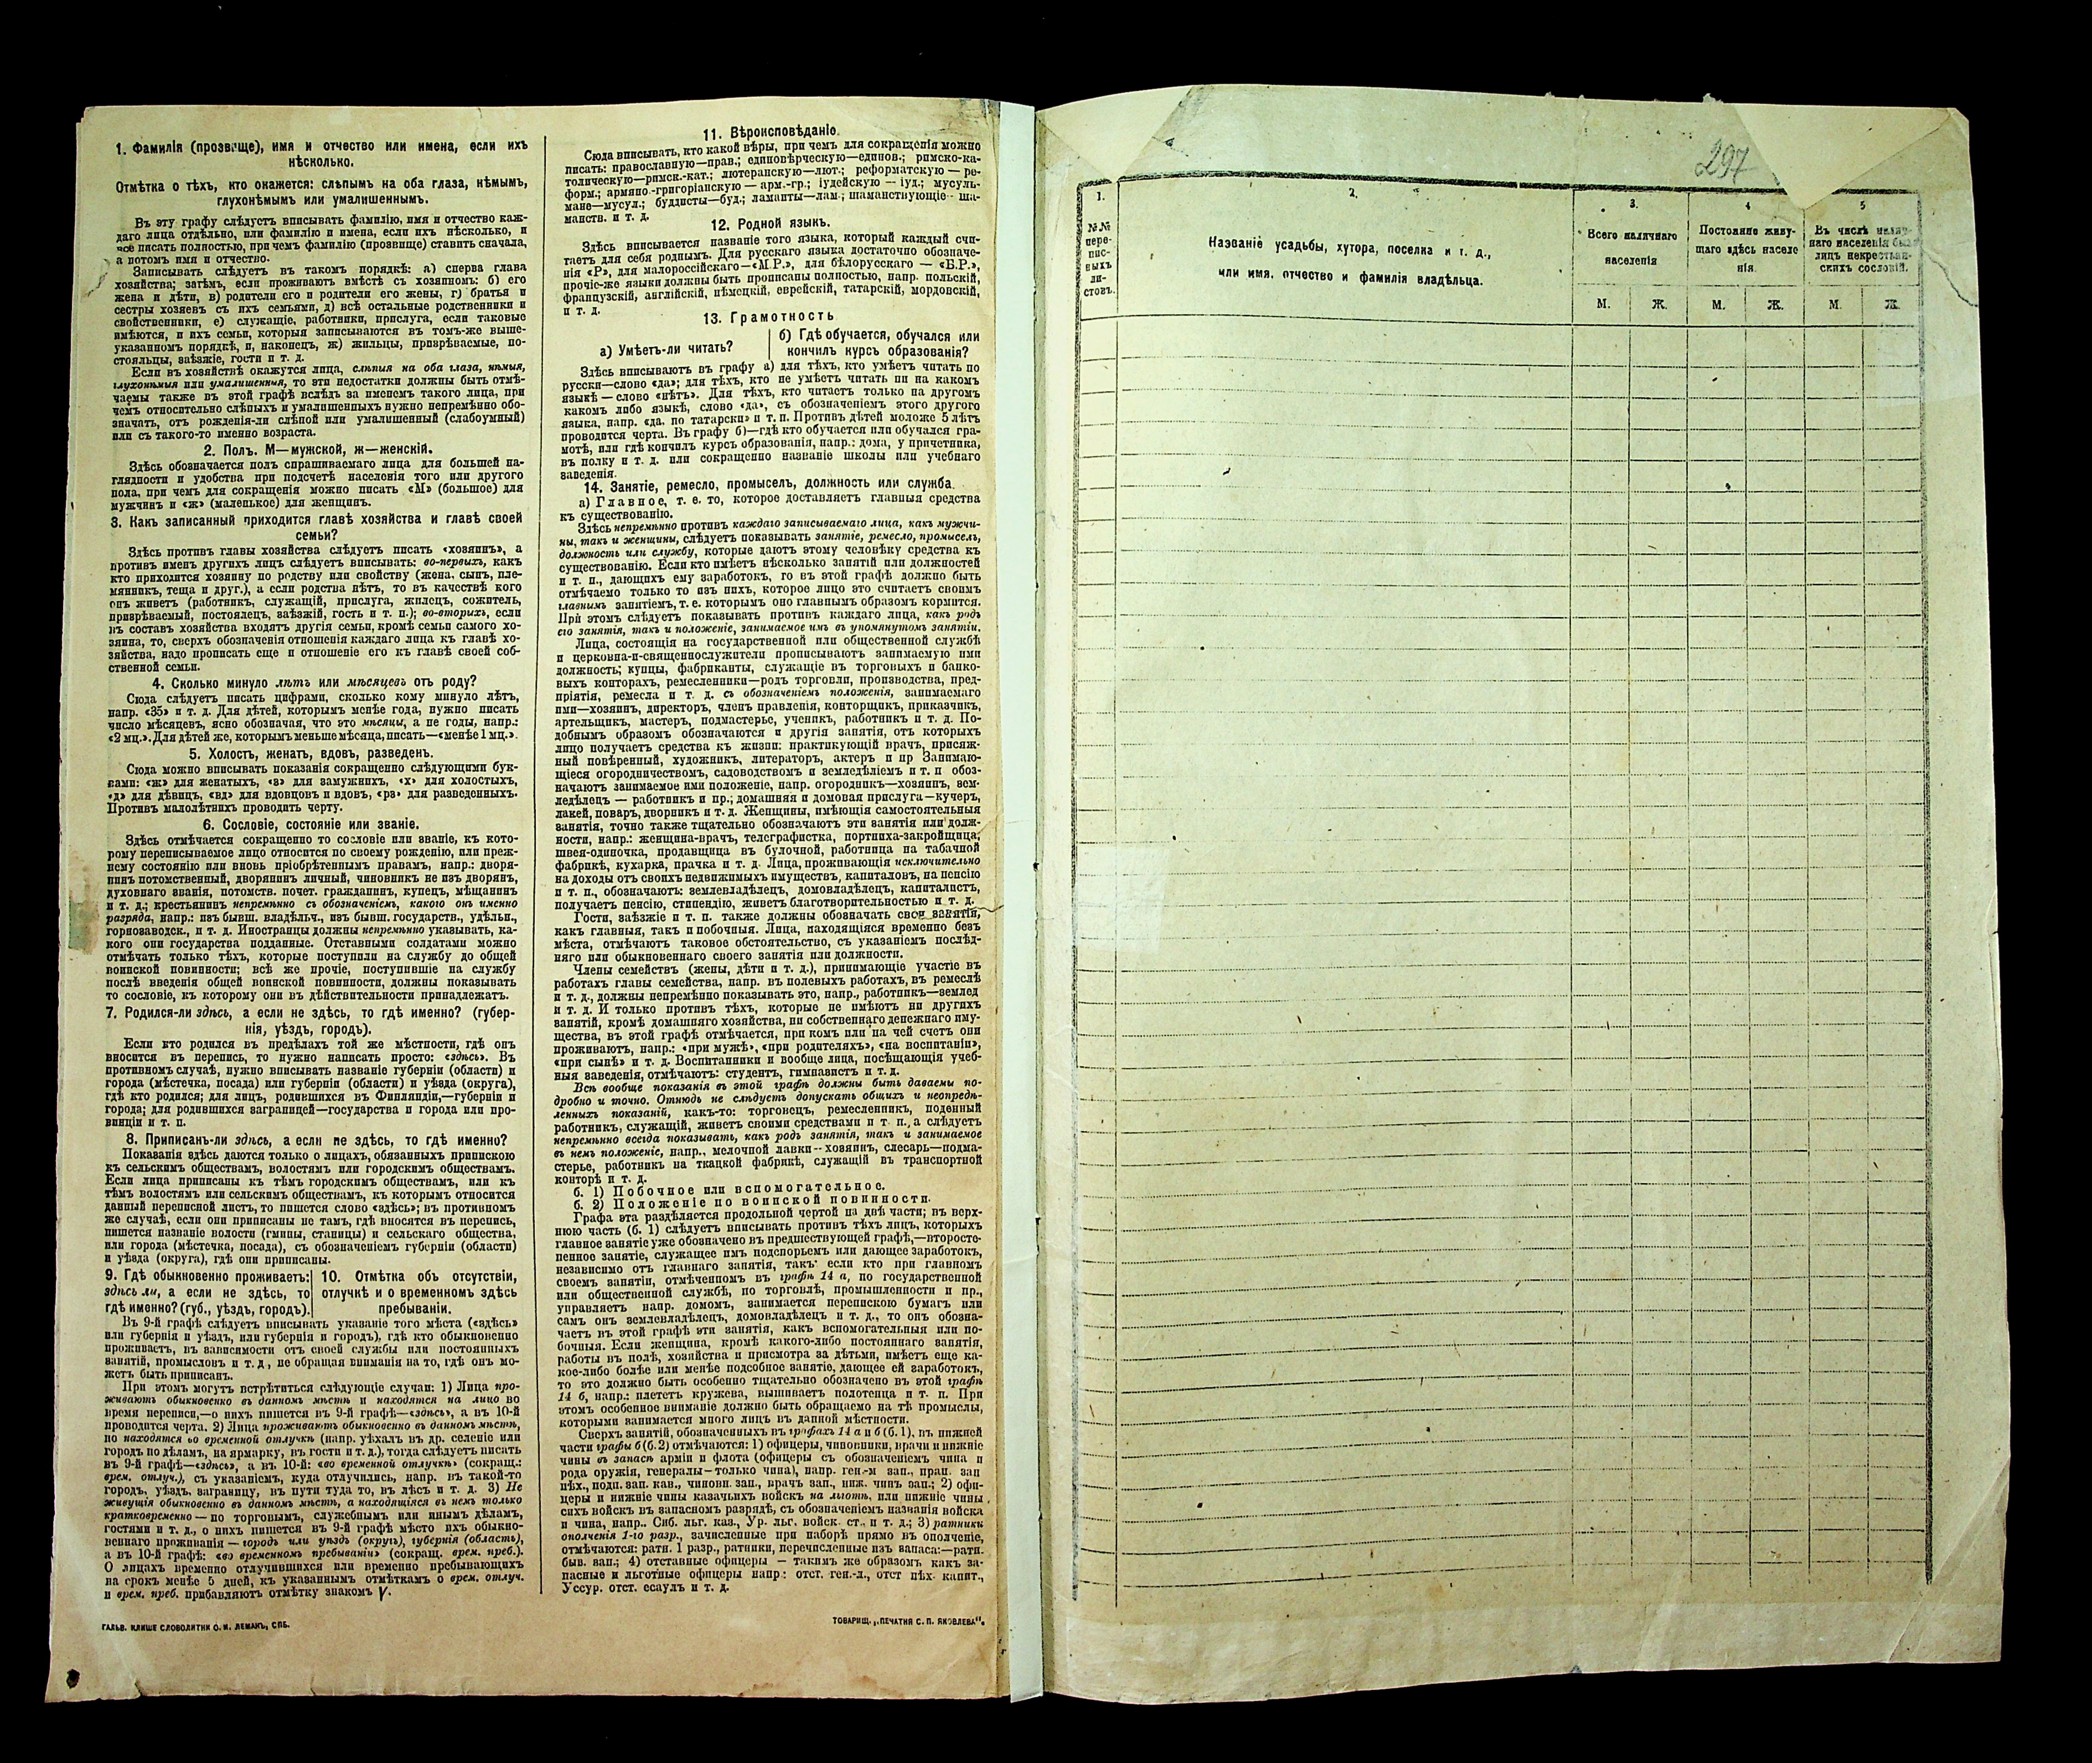 1. Фамилія (прозвище), имя и отчество или имена, если ихъ
нѣсколько.
Отмѣтка о тѣхъ, кто окажется: слѣпымъ на оба глаза, нѣмымъ,
глухонѣмымъ или умалишеннымъ.
Въ эту графу слѣдуетъ вписывать фамилію, имя и отчество каж-
даго лица отдѣльно, или фамилію и имена, если ихъ нѣсколько, и
все писать полностью, при чемъ фамилію (прозвище) ставить сначала,
а потомъ имя и отчество.
Записывать слѣдуетъ въ такомъ порядкѣ: а) сперва глава
хозяйства; затѣмъ, если проживаютъ вмѣстѣ съ хозяиномъ: б) его
жена и дѣти, в) родители его и родители его жены, г) братья и
сестры хозяевъ съ ихъ семьями, д) всѣ остальные родственники и
свойственники, е) служащіе, работники, прислуга, если таковые
имѣются, и ихъ семьи, которыя записываются въ томъ-же выше-
указанномъ порядкѣ, и, наконецъ, ж) жильцы, призрѣваемые, по-
стояльцы, заѣзжіе, гости и т. д.
Если въ хозяйствѣ окажутся лица, слѣпыя на оба глаза, нѣмыя,
глухонѣмыя или умалишенныя, то эти недостатки должны быть отмѣ-
чаемы также въ этой графѣ вслѣдъ за именемъ такого лица, при
чемъ относительно слѣпыхъ и умалишенныхъ нужно непремѣнно обо-
значать, отъ рожденія-ли слѣпой или умалишенный (слабоумный)
или съ такого-то именно возраста.
2. Полъ. М—мужской, ж—женскій.
Здѣсь обозначается полъ спрашиваемаго лица для большей на-
глядности и удобства при подсчетѣ населенія того или другого
пола, при чемъ для сокращенія можно писать «М» (большое) для
мужчинъ и «ж» (маленькое) для женщинъ.
3. Какъ записанный приходится главѣ хозяйства и главѣ своей
семьи?
Здѣсь противъ главы хозяйства слѣдуетъ писать «хозяинъ», а
противъ именъ другихъ лицъ слѣдуетъ вписывать: во-первыхъ, какъ
кто приходится хозяину по родству или свойству (жена, сынъ, пле-
мянникъ, теща и друг.), а если родства нѣтъ, то въ качествѣ кого
онъ живетъ (работникъ, служащій, прислуга, жилецъ, сожитель,
призрѣваемый, постоялецъ, заѣзжій, гость и т. п.); во-вторыхъ, если
въ составъ хозяйства входятъ другія семьи, кромѣ семьи самого хо-
зяина, то, сверхъ обозначенія отношенія каждаго лица къ главѣ хо-
зяйства, надо прописать еще и отношеніе его къ главѣ своей соб-
ственной семьи.
4. Сколько минуло лѣтъ или мѣсяцевъ отъ роду?
Сюда слѣдуетъ писать цифрами, сколько кому минуло лѣтъ,
напр. «35» и т. д. Для дѣтей, которымъ менѣе года, нужно писать
число мѣсяцевъ, ясно обозначая, что это мѣсяцы, а не годы, напр.:
«2 мц.». Для дѣтей же, которымъ меньше мѣсяца, писать—«менѣе 1 мц.».
5. Холостъ, женатъ, вдовъ, разведенъ.
Сюда можно вписывать показанія сокращенно слѣдующими бук-
вами: «ж» для женатыхъ, «з» для замужнихъ, «х» для холостыхъ,
«д» для дѣвицъ, «вд» для вдовцовъ и вдовъ, «рз» для разведенныхъ.
Противъ малолѣтнихъ проводить черту.
6. Сословіе, состояніе или званіе.
Здѣсь отмѣчается сокращенно то сословіе или званіе, къ кото-
рому переписываемое лицо относится по своему рожденію, или преж-
нему состоянію или вновь пріобрѣтеннымъ правамъ, напр.: дворя-
нинъ потомственный, дворянинъ личный, чиновникъ не изъ дворянъ,
духовнаго званія, потомств. почет. гражданинъ, купецъ, мѣщанинъ
и т. д.; крестьянинъ непремѣнно съ обозначеніемъ, какого онъ именно
разряда, напр.: изъ бывш. владѣльч., изъ бывш. государств., удѣльн.,
горнозаводск., и т. д. Иностранцы должны непремѣнно указывать, ка-
кого они государства подданные. Отставными солдатами можно
отмѣчать только тѣхъ, которые поступили на службу до общей
воинской повинности; всѣ же прочіе, поступившіе на службу
послѣ введенія общей воинской повинности, должны показывать
то сословіе, къ которому они въ дѣйствительности принадлежатъ.
7. Родился-ли здѣсь, а если не здѣсь, то гдѣ именно? (губер-
нія, уѣздъ, городъ).
Если кто родился въ предѣлахъ той же мѣстности, гдѣ онъ
вносится въ перепись, то нужно написать просто: «здѣсь». Въ
противномъ случаѣ, нужно вписывать названіе губерніи (области) и
города (мѣстечка, посада) или губерніи (области) и уѣзда (округа),
гдѣ кто родился; для лицъ, родившихся въ Финляндіи,—губерніи и
города; для родившихся заграницей—государства и города или про-
винціи и т. п.
8. Приписанъ-ли здѣсь, а если не здѣсь, то гдѣ именно?
Показанія здѣсь даются только о лицахъ, обязанныхъ припискою
къ сельскимъ обществамъ, волостямъ или городскимъ обществамъ.
Если лица приписаны къ тѣмъ городскимъ обществамъ, или къ
тѣмъ волостямъ или сельскимъ обществамъ, къ которымъ относится
данный переписной листъ, то пишется слово «здѣсь»; въ противномъ
же случаѣ, если они приписаны не тамъ, гдѣ вносятся въ перепись,
пишется названіе волости (гмины, станицы) и сельскаго общества,
или города (мѣстечка, посада), съ обозначеніемъ губерніи (области)
и уѣзда (округа), гдѣ они приписаны.
9. Гдѣ обыкновенно проживаетъ:
здѣсь ли, а если не здѣсь, то
гдѣ именно? (губ., уѣздъ, городъ).
10. Отмѣтка объ отсутствіи,
отлучкѣ и о временномъ здѣсь
пребываніи.
Въ 9-й графѣ слѣдуетъ вписывать указаніе того мѣста («здѣсь»
или губернія и уѣздъ, или губернія и городъ), гдѣ кто обыкновенно
проживаетъ, въ зависимости отъ своей службы или постоянныхъ
занятій, промысловъ и т. д., не обращая вниманія на то, гдѣ онъ мо-
жетъ быть приписанъ.
При этомъ могутъ встрѣтиться слѣдующіе случаи: 1) Лица про-
живаютъ обыкновенно въ данномъ мѣстѣ и находятся на лицо во
время переписи,—о нихъ пишется въ 9-й графѣ—«здѣсь», а въ 10-й
проводится черта. 2) Лица проживаютъ обыкновенно въ данномъ мѣстѣ,
но находятся во временной отлучкѣ (напр. уѣхалъ въ др. селеніе или
городъ по дѣламъ, на ярмарку, въ гости и т. д.), тогда слѣдуетъ писать
въ 9-й графѣ—«здѣсь», а въ 10-й: «во временной отлучкѣ» (сокращ.:
врем. отлуч.), съ указаніемъ, куда отлучились, напр. въ такой-то
городъ, уѣздъ, заграницу, въ пути туда то, въ лѣсъ и т. д. 3) Не
живущія обыкновенно въ данномъ мѣстѣ, а находящіяся въ немъ только
кратковременно — по торговымъ, служебнымъ или инымъ дѣламъ,
гостями и т. д., о нихъ пишется въ 9-й графѣ мѣсто ихъ обыкно-
веннаго проживанія — городъ или уѣздъ (округъ), губернія (область),
а въ 10-й графѣ: «во временномъ пребываніи» (сокращ. врем. преб.).
О лицахъ временно отлучившихся или временно пребывающихъ
на срокъ менѣе 5 дней, къ указаннымъ отмѣткамъ о врем. отлуч.
и врем. преб. прибавляютъ отмѣтку знакомъ V.
ГАЛЬВ. КЛИШЕ СЛОВОЛИТНИ О. И. ЛЕМАНЪ, СПБ.
11. Вѣроисповѣданіе.
Сюда вписывать, кто какой вѣры, при чемъ для сокращенія можно
писать: православную—прав.; единовѣрческую—единов.; римско-ка-
толическую—римск.-кат.; лютеранскую—лют.; реформатскую — ре-
форм.; армяно-григоріанскую — арм.-гр.; іудейскую — іуд.; мусуль-
мане—мусул.; буддисты—буд.; ламаиты—лам.; шаманствующіе—ша-
манств. и т. д.
12. Родной языкъ.
Здѣсь вписывается названіе того языка, который каждый счи-
таетъ для себя роднымъ. Для русскаго языка достаточно обозначе-
нія «Р», для малороссійскаго—«М.Р.», для бѣлорусскаго — «Б.Р.»,
прочіе-же языки должны быть прописаны полностью, напр. польскій,
французскій, англійскій, нѣмецкій, еврейскій, татарскій, мордовскій,
и т. д.
13. Грамотность
а) Умѣетъ-ли читать?
б) Гдѣ обучается, обучался или
кончилъ курсъ образованія?
Здѣсь вписываютъ въ графу а) для тѣхъ, кто умѣетъ читать по
русски—слово «да»; для тѣхъ, кто не умѣетъ читать ни на какомъ
языкѣ — слово «нѣтъ». Для тѣхъ, кто читаетъ только на другомъ
какомъ либо языкѣ, слово «да», съ обозначеніемъ этого другого
языка, напр. «да. по татарски» и т. п. Противъ дѣтей моложе 5 лѣтъ
проводится черта. Въ графу б)—гдѣ кто обучается или обучался гра-
мотѣ, или гдѣ кончилъ курсъ образованія, напр.: дома, у причетника,
въ полку и т. д. или сокращенно названіе школы или учебнаго
заведенія.
14. Занятіе, ремесло, промыселъ, должность или служба.
а) Главное, т. е. то, которое доставляетъ главныя средства
къ существованію.
Здѣсь непремѣнно противъ каждаго записываемаго лица, какъ мужчи-
ны, такъ и женщины, слѣдуетъ показывать занятіе, ремесло, промыселъ,
должность или службу, которые даютъ этому человѣку средства къ
существованію. Если кто имѣетъ нѣсколько занятій или должностей
и т. п., дающихъ ему заработокъ, то въ этой графѣ должно быть
отмѣчаемо только то изъ нихъ, которое лицо это считаетъ своимъ
главнымъ занятіемъ, т. е. которымъ оно главнымъ образомъ кормится.
При этомъ слѣдуетъ показывать противъ каждаго лица, какъ родъ
его занятія, такъ и положеніе, занимаемое имъ въ упомянутомъ занятіи.
Лица, состоящія на государственной или общественной службѣ
и церковно-и-священнослужители прописываютъ занимаемую ими
должность; купцы, фабриканты, служащіе въ торговыхъ и банко-
выхъ конторахъ, ремесленники—родъ торговли, производства, пред-
пріятія, ремесла и т. д. съ обозначеніемъ положенія, занимаемаго
ими—хозяинъ, директоръ, членъ правленія, конторщикъ, приказчикъ,
артельщикъ, мастеръ, подмастерье, ученикъ, работникъ и т. д. По-
добнымъ образомъ обозначаются и другія занятія, отъ которыхъ
лицо получаетъ средства къ жизни: практикующій врачъ, присяж-
ный повѣренный, художникъ, литераторъ, актеръ и пр. Занимаю-
щіеся огородничествомъ, садоводствомъ и земледѣліемъ и т. п. обоз-
начаютъ занимаемое ими положеніе, напр. огородникъ—хозяинъ, зем-
ледѣлецъ — работникъ и пр.; домашняя и домовая прислуга—кучеръ,
лакей, поваръ, дворникъ и т. д. Женщины, имѣющія самостоятельныя
занятія, точно также тщательно обозначаютъ эти занятія или долж-
ности, напр.: женщина-врачъ, телеграфистка, портниха-закройщица,
швея-одиночка, продавщица въ булочной, работница на табачной
фабрикѣ, кухарка, прачка и т. д. Лица, проживающія исключительно
на доходы отъ своихъ недвижимыхъ имуществъ, капиталовъ, на пенсію
и т. п., обозначаютъ: землевладѣлецъ, домовладѣлецъ, капиталистъ,
получаетъ пенсію, стипендію, живетъ благотворительностью и т. д.
Гости, заѣзжіе и т. п. также должны обозначать свои занятія,
какъ главныя, такъ и побочныя. Лица, находящіяся временно безъ
мѣста, отмѣчаютъ таковое обстоятельство, съ указаніемъ послѣд-
няго или обыкновеннаго своего занятія или должности.
Члены семействъ (жены, дѣти и т. д.), принимающіе участіе въ
работахъ главы семейства, напр. въ полевыхъ работахъ, въ ремеслѣ
и т. д., должны непремѣнно показывать это, напр., работникъ—землед
и т. д. И только противъ тѣхъ, которые не имѣютъ ни другихъ
занятій, кромѣ домашняго хозяйства, ни собственнаго денежнаго иму-
щества, въ этой графѣ отмѣчается, при комъ или на чей счетъ они
проживаютъ, напр.: «при мужѣ», «при родителяхъ», «на воспитаніи»,
«при сынѣ» и т. д. Воспитанники и вообще лица, посѣщающія учеб-
ныя заведенія, отмѣчаютъ: студентъ, гимназистъ и т. д.
Всѣ вообще показанія въ этой графѣ должны быть даваемы по-
дробно и точно. Отнюдь не слѣдуетъ допускать общихъ и неопредѣ-
ленныхъ показаній, какъ-то: торговецъ, ремесленникъ, поденный
работникъ, служащій, живетъ своими средствами и т. п., а слѣдуетъ
непремѣнно всегда показывать, какъ родъ занятія, такъ и занимаемое
въ немъ положеніе, напр., мелочной лавки--хозяинъ, слесарь—подма-
стерье, работникъ на ткацкой фабрикѣ, служащій въ транспортной
конторѣ и т. д.
б. 1) Побочное или вспомогательное.
б. 2) Положеніе по воинской повинности.
Графа эта раздѣляется продольной чертой на двѣ части; въ верх-
нюю часть (б. 1) слѣдуетъ вписывать противъ тѣхъ лицъ, которыхъ
главное занятіе уже обозначено въ предшествующей графѣ,—второсте-
пенное занятіе, служащее имъ подспорьемъ или дающее заработокъ,
независимо отъ главнаго занятія, такъ если кто при главномъ
своемъ занятіи, отмѣченномъ въ графѣ 14 а, по государственной
или общественной службѣ, по торговлѣ, промышленности и пр.,
управляетъ напр. домомъ, занимается перепискою бумагъ или
самъ онъ землевладѣлецъ, домовладѣлецъ и т. д., то онъ обозна-
чаетъ въ этой графѣ эти занятія, какъ вспомогательныя или по-
бочныя. Если женщина, кромѣ какого-либо постояннаго занятія,
работы въ полѣ, хозяйства и присмотра за дѣтьми, имѣетъ еще ка-
кое-либо болѣе или менѣе подсобное занятіе, дающее ей заработокъ,
то это должно быть особенно тщательно обозначено въ этой графѣ
14 б, напр.: плететъ кружева, вышиваетъ полотенца и т. п. При
этомъ особенное вниманіе должно быть обращаемо на тѣ промыслы,
которыми занимается много лицъ въ данной мѣстности.
Сверхъ занятій, обозначенныхъ въ графахъ 14 а и б (б. 1), въ нижней
части графы б (б. 2) отмѣчаются: 1) офицеры, чиновники, врачи и нижніе
чины въ запасѣ арміи и флота (офицеры съ обозначеніемъ чина и
рода оружія, генералы—только чина), напр. ген.-м зап., прап. зап
пѣх., подп. зап. кав., чиновн. зап., врачъ зап., ниж. чинъ зап.; 2) офи-
церы и нижніе чины казачьихъ войскъ на льготѣ, или нижніе чины
сихъ войскъ въ запасномъ разрядѣ, съ обозначеніемъ названія войска
и чина, напр.. Сиб. льг. каз., Ур. льг. войск. ст., и т. д.; 3) ратники
ополченія 1-го разр., зачисленные при наборѣ прямо въ ополченіе,
отмѣчаются: ратн. 1 разр., ратники, перечисленные изъ запаса:—ратн.
быв. зап.; 4) отставные офицеры — такимъ же образомъ, какъ за-
пасные и льготные офицеры напр.: отст. ген.-л., отст пѣх. капит.,
Уссур. отст. есаулъ и т. д.
ТОВАРИЩ. „ПЕЧАТНЯ С. П. ЯКОВЛЕВА“.
297
1.
№№
пере-
пис-
ныхъ
ли-
стовъ.
2.
Названіе усадьбы, хутора, поселка и т. д.,
или имя, отчество и фамилія владѣльца.
3.
Всего наличнаго
населенія
М. Ж.
4
Постоянно живу-
щаго здѣсь населе
нія
М. Ж.
5
Въ числѣ налич-
наго населенія было
лицъ некрестьян-
скихъ сословій.
М. Ж.